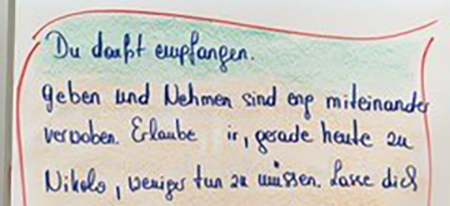 Du darfst empfangen.
geben und Nehmen sind eng miteinander
verwoben. Erlaube ir, gerade heute zu
Nikolo, weniger tun zu müssen. Lasse dich